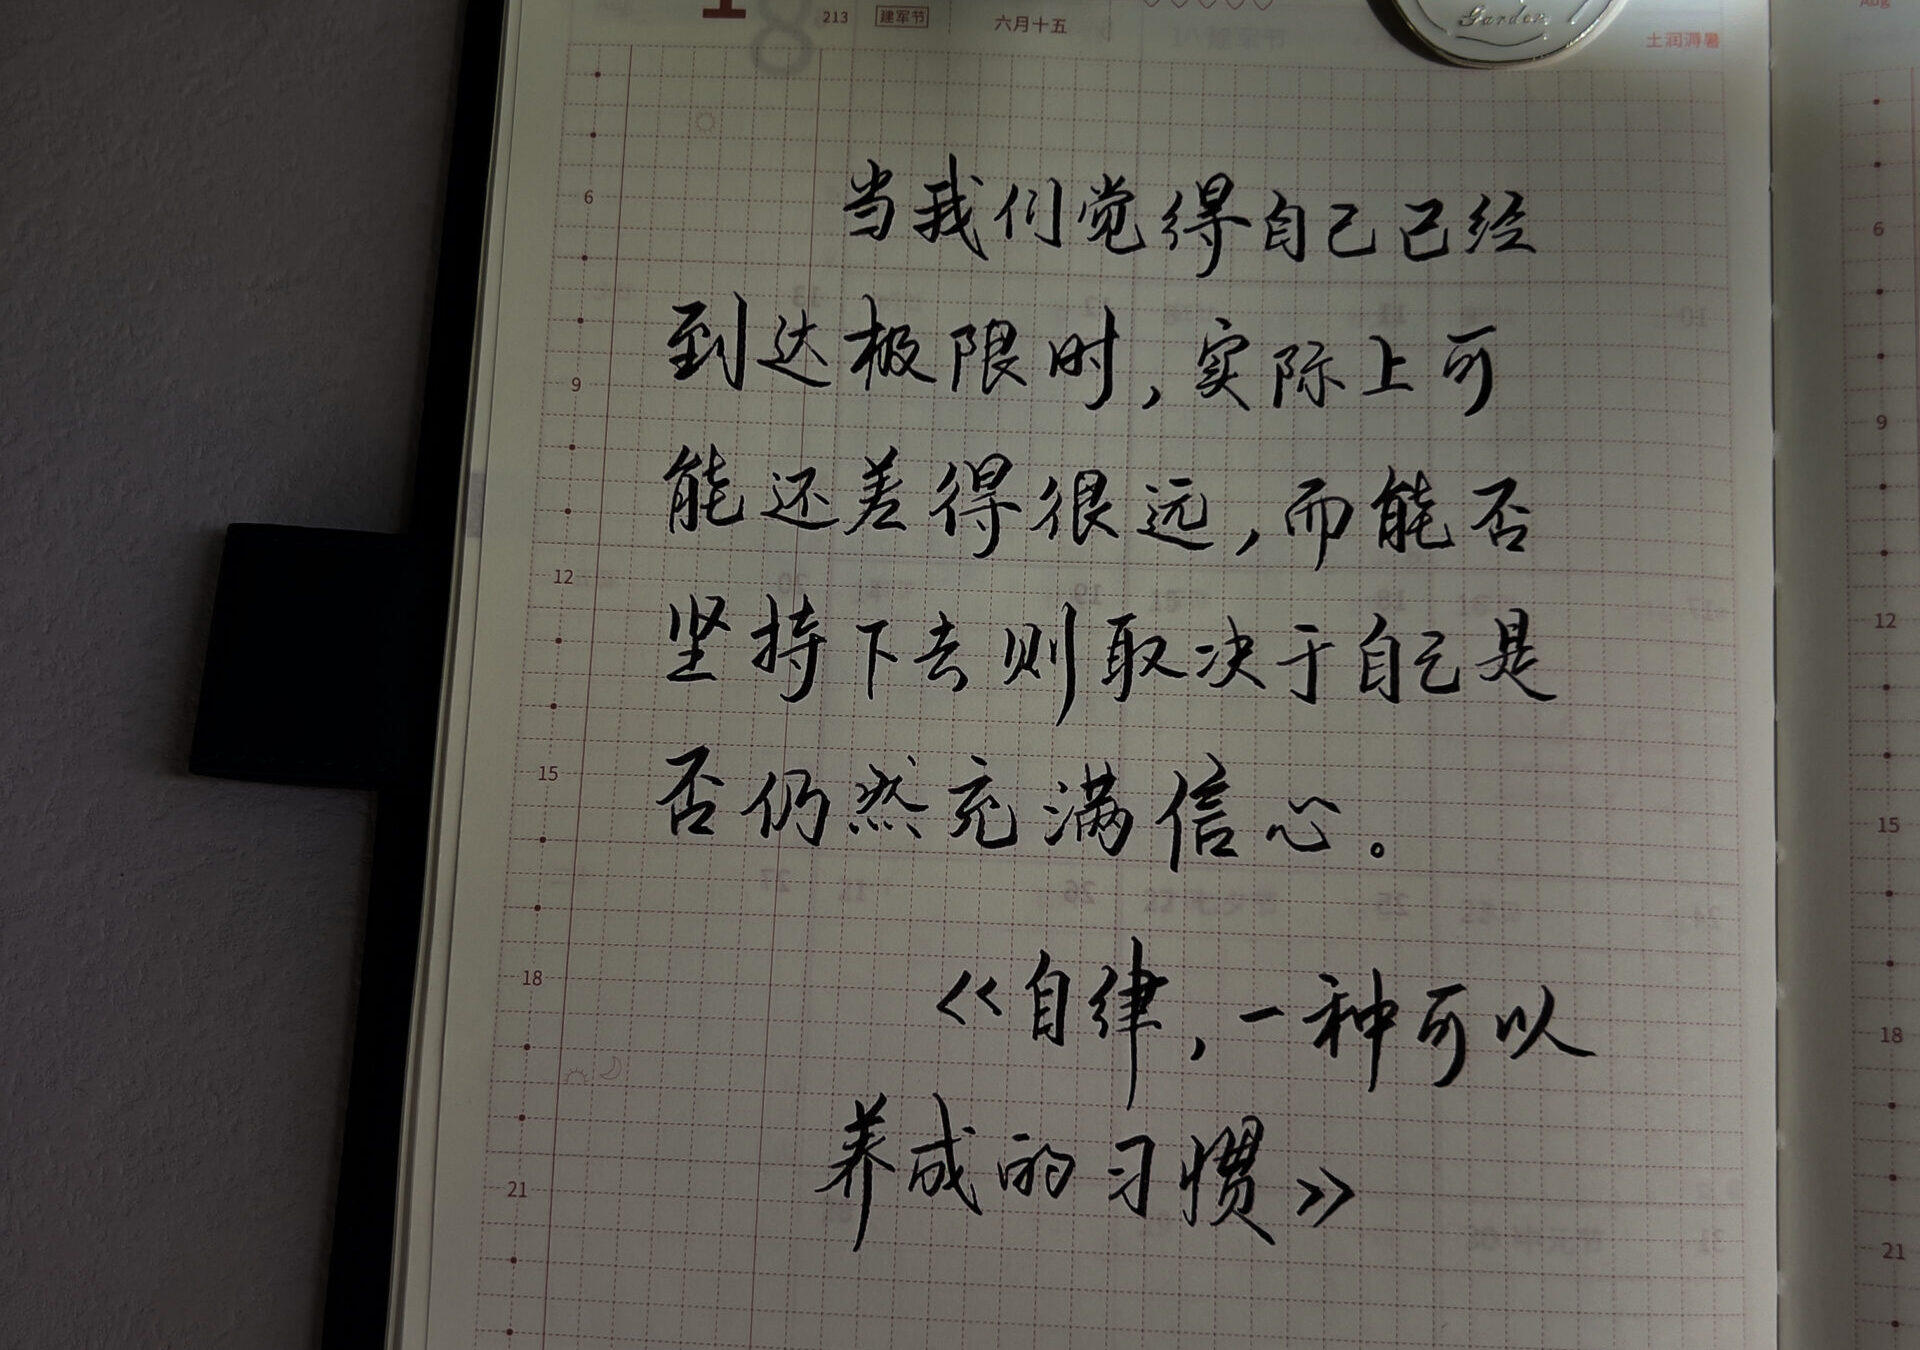 1
8
213 建军节 六月十五
Garden
土润溽暑
Aug
当我们觉得自己已经
到达极限时,实际上可
能还差得很远,而能否
坚持下去则取决于自己是
否仍然充满信心。
《自律,一种可以
养成的习惯》
6
9
12
15
18
21
6
9
12
15
18
21